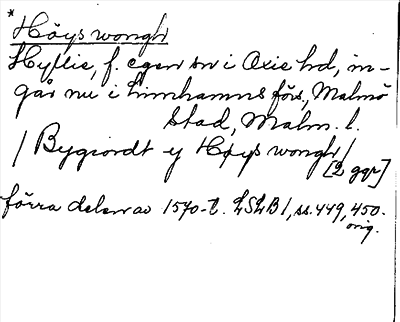 *Höys wongh
Hyllie, f. egen sn i Oxie hd, in-
går nu i Limhamns förs., Malmö
stad, Malm. l.
/ Bygiordt ey Høys wongh /
[2 ggr]
förra delen av 1570-t. LSLB 1, ss. 449, 450.
orig.